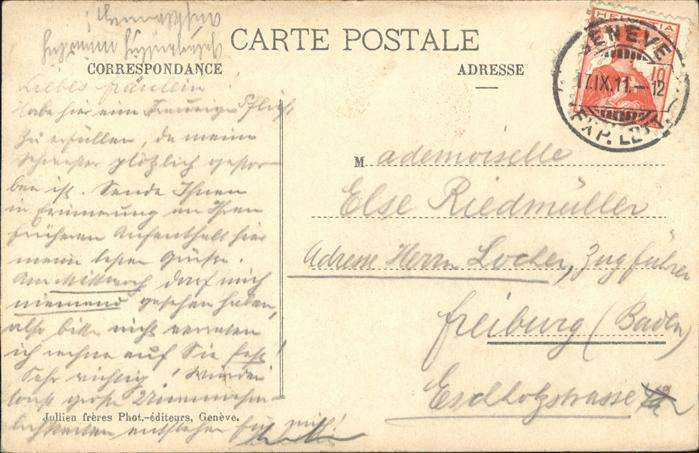 CARTE POSTALE
CORRESPONDANCE
ADRESSE
HELVETIA
10
GENÈVE
17.IX.11.-12
EXP. LETT.
Liebes Fräulein
Habe hier eine traurige Pflicht
zu erfüllen, da meine
Schwester plötzlich gestor-
ben ist. Sende Ihnen
in Erinnerung an Ihren
früheren Aufenthalt hier
meine besten Grüße.
Am Mittwoch darf mich
niemand gesehen haben,
also bitte nicht verraten
ich rechne auf Sie fest!
Sehr wichtig! Würden
sonst große Unannehm-
lichkeiten entstehen für mich!
Mademoiselle
Else Riedmüller
Adresse Herrn Locher, Zugführer
Freiburg (Baden)
Escholzstrasse
Jullien frères Phot.-éditeurs, Genève.